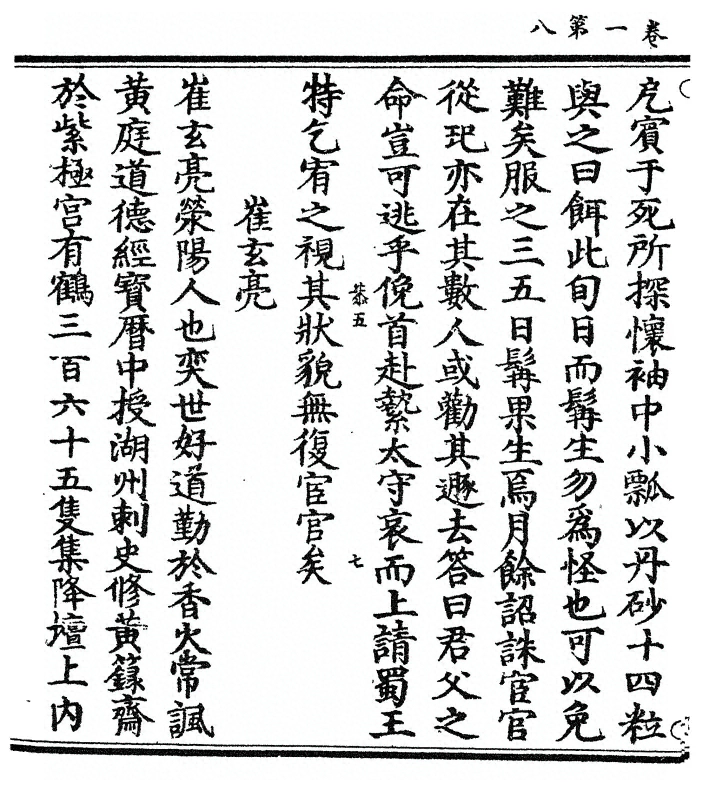 卷一第八
戹賓于死所探懷袖中小瓢以丹砂十四粒
與之曰餌此旬日而髯生勿爲怪也可以免
難矣服之三五日髯果生焉月餘詔誅宦官
從玘亦在其數人或勸其遯去答曰君父之
命豈可逃乎俛首赴縶太守哀而上請蜀王
恭五
七
特乞宥之視其狀貌無復宦官矣
崔玄亮
崔玄亮滎陽人也奕世好道勤於香火常諷
黃庭道德經寶曆中授湖州刺史修黃籙齋
於紫極宮有鶴三百六十五隻集降壇上內